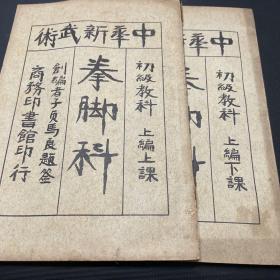 中華新武術
初級教科 上編上課
拳脚科
創編者子貞馬良題簽
商務印書館印行
中華
初級教科 上編下課
拳